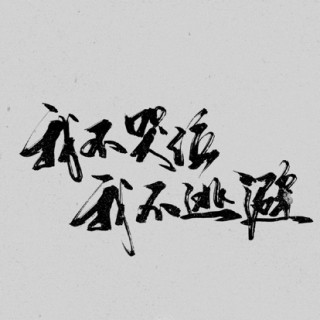 我不哭泣
我不逃避